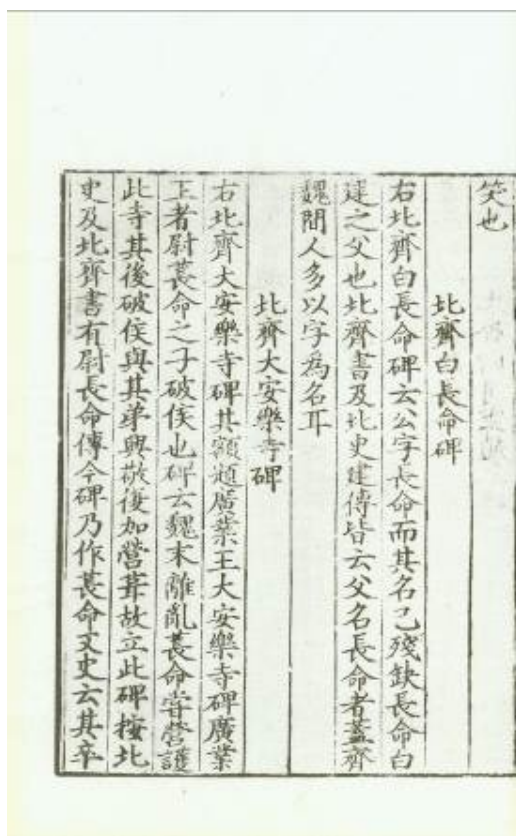 笑也
北齊白長命碑
右北齊白長命碑云公字長命而其名已殘缺長命白
建之父也北齊書及北史建傳皆云父名長命者蓋齊
魏間人多以字為名耳
北齊大安樂寺碑
右北齊大安樂寺碑其額題廣業王大安樂寺碑廣業
王者尉萇命之子破侯也碑云魏末離亂萇命嘗營護
此寺其後破侯與其弟興敬復加營葺故立此碑按北
史及北齊書有尉長命傳今碑乃作萇命又史云其卒